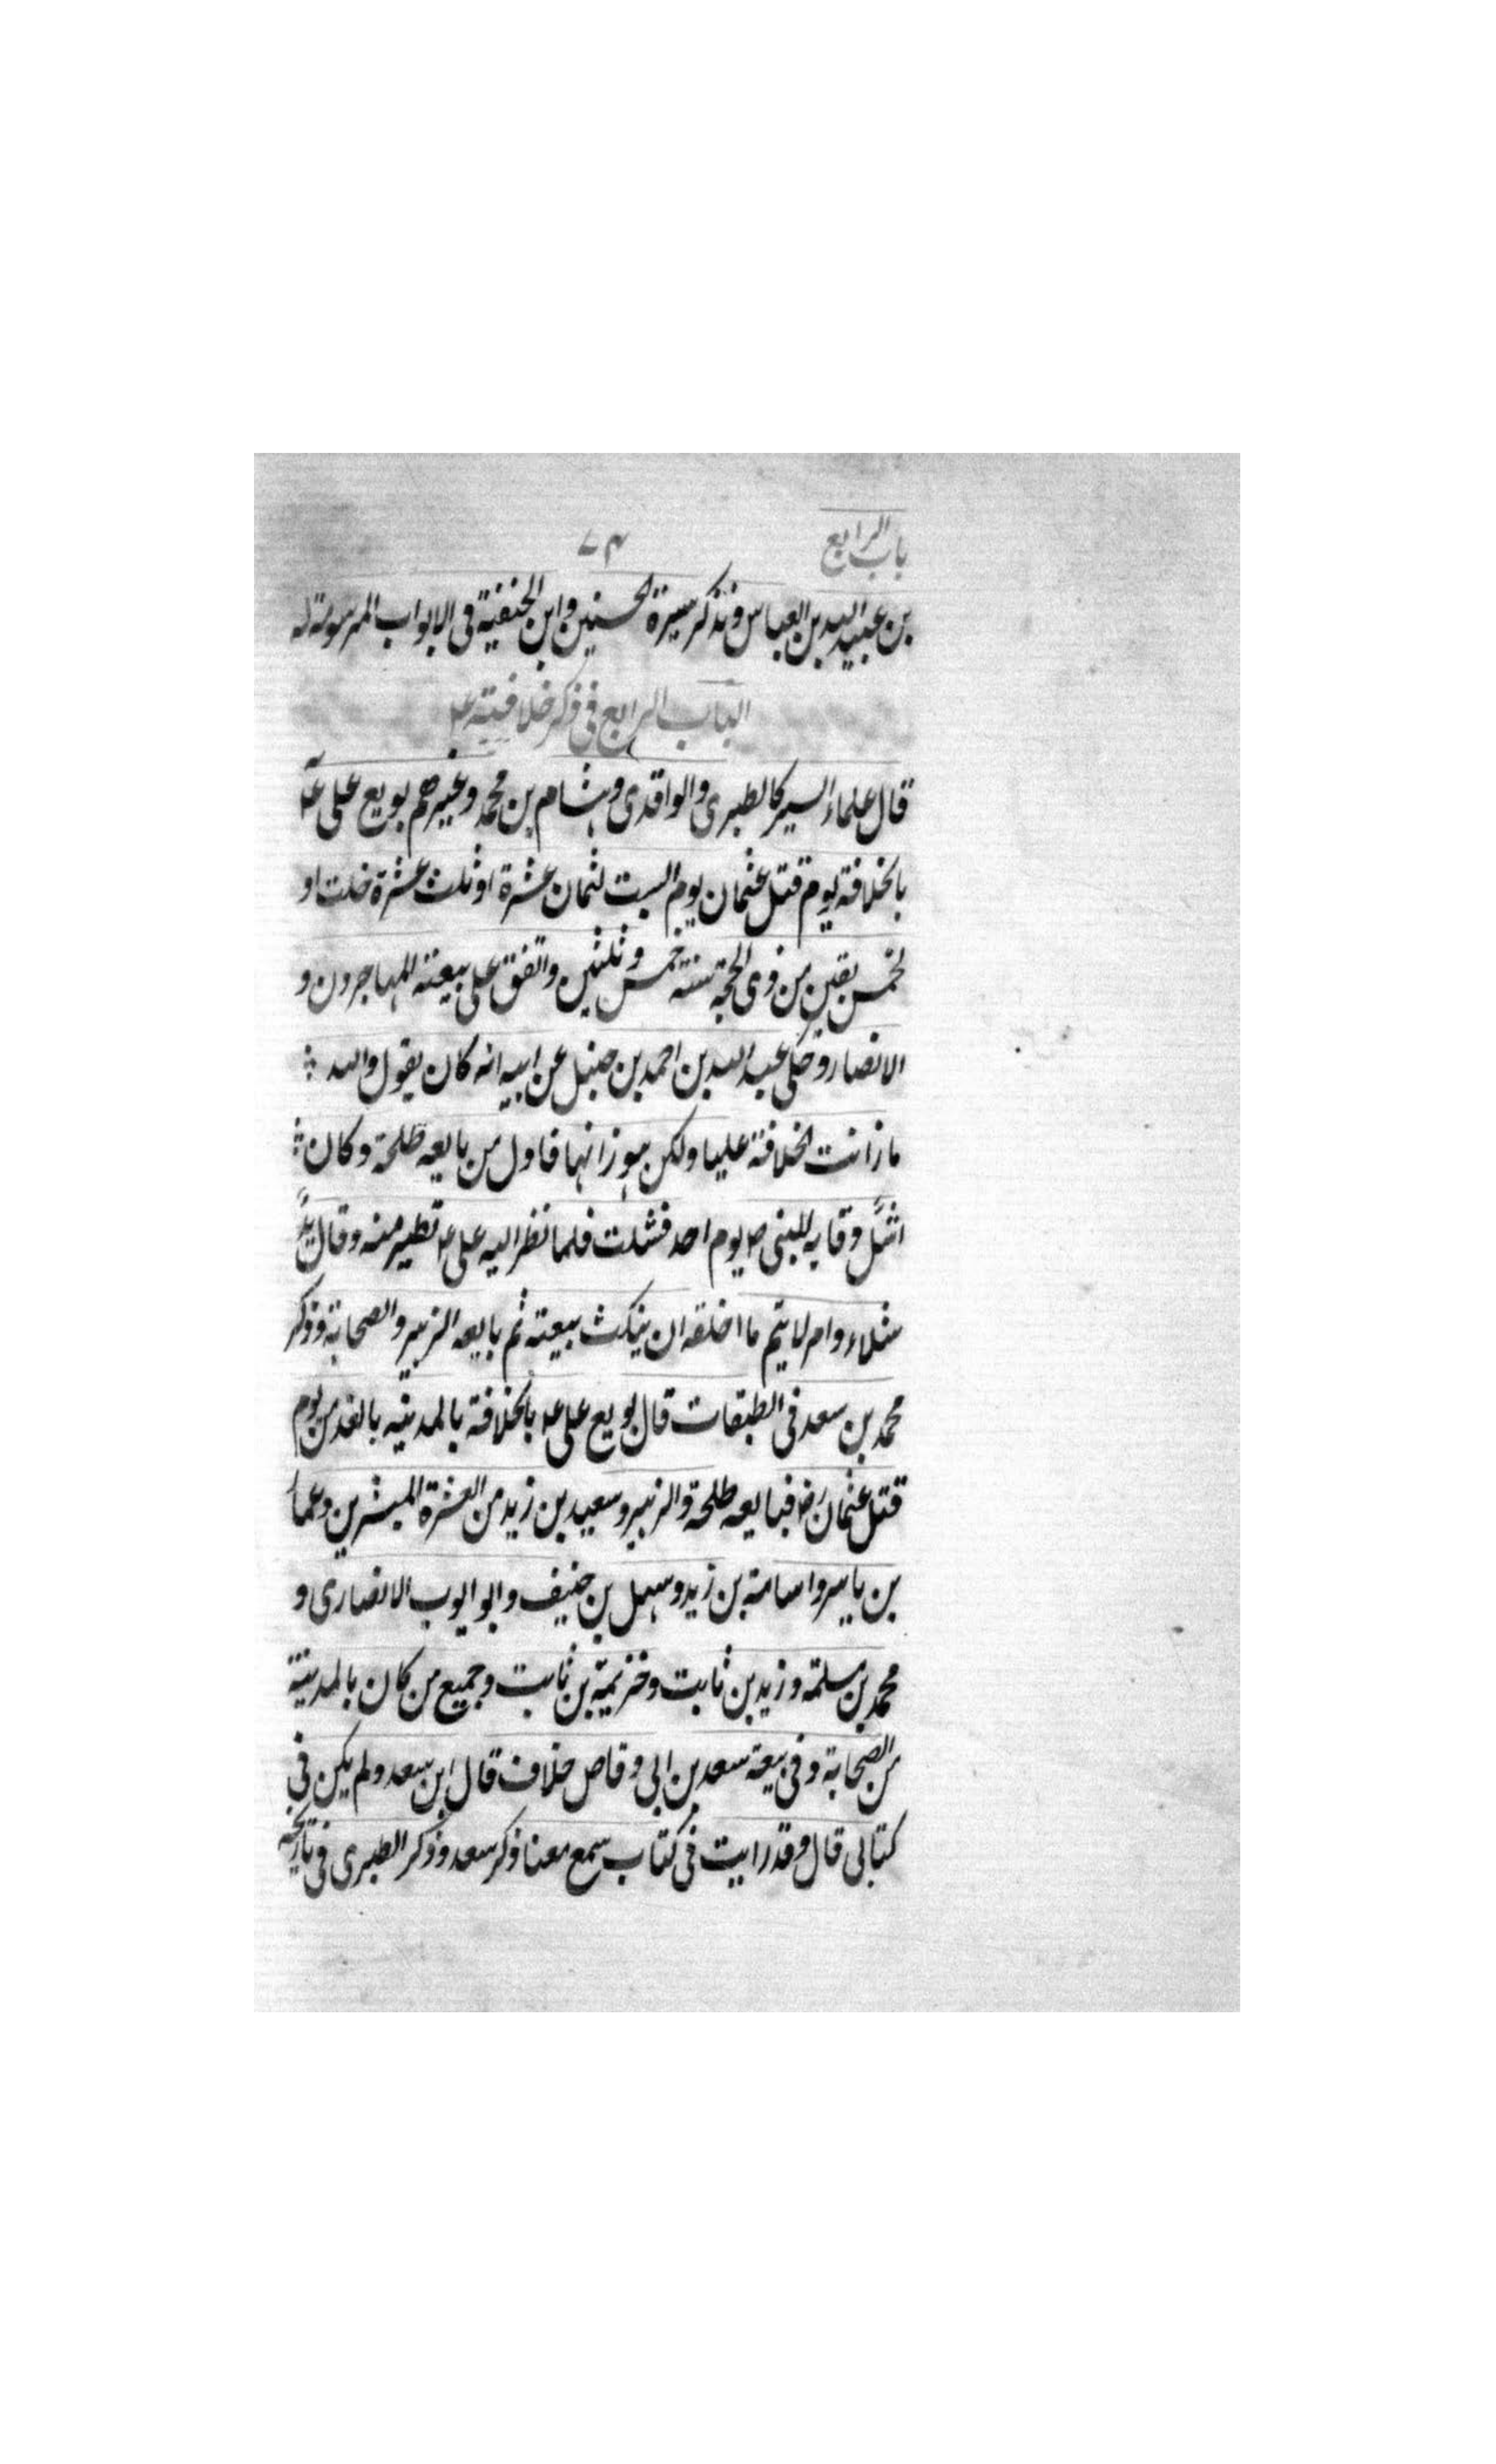 باب الرابع
٧٤
بن عبيد الله بن العباس ونذكر سيرة الحسنين وابن الحنفية فى الابواب المرسومة له
الباب الرابع فى ذكر خلافته ع
قال علماء السير كالطبرى والواقدى وهشام بن محمد وغيرهم بويع على ع
بالخلافة يوم قتل عثمان يوم السبت لثمان عشرة او ثلث عشرة خلت او
لخمس بقين من ذى الحجة سنة خمس وثلثين واتفق على بيعته المهاجرون و
الانصار وحكى عبد الله بن احمد بن حنبل عن ابيه انه كان يقول والله
ما زانت الخلافة عليا ولكن هو زانها فاول من بايعه طلحة وكان
اشل وقاية للنبى ص يوم احد فشلت فلما نظر اليه على ع تطير منه وقال يد
شلاء وامر لا يتم ما اخلقه ان ينكث بيعته ثم بايعه الزبير والصحابة وذكر
محمد بن سعد فى الطبقات قال بويع على ع بالخلافة بالمدينه بالغد من يوم
قتل عثمان رض فبايعه طلحة والزبير وسعيد بن زيد من العشرة المبشرين وعما
بن ياسر واسامة بن زيد وسهل بن حنيف وابو ايوب الانصارى و
محمد بن مسلمة وزيد بن ثابت وخزيمة بن ثابت وجميع من كان بالمدينة
من الصحابة وفى بيعة سعد بن ابى وقاص خلاف قال ابن سعد ولم يكن فى
كتابى قال وقد رايت فى كتاب سمع معنا ذكر سعد وذكر الطبرى فى تاريخه